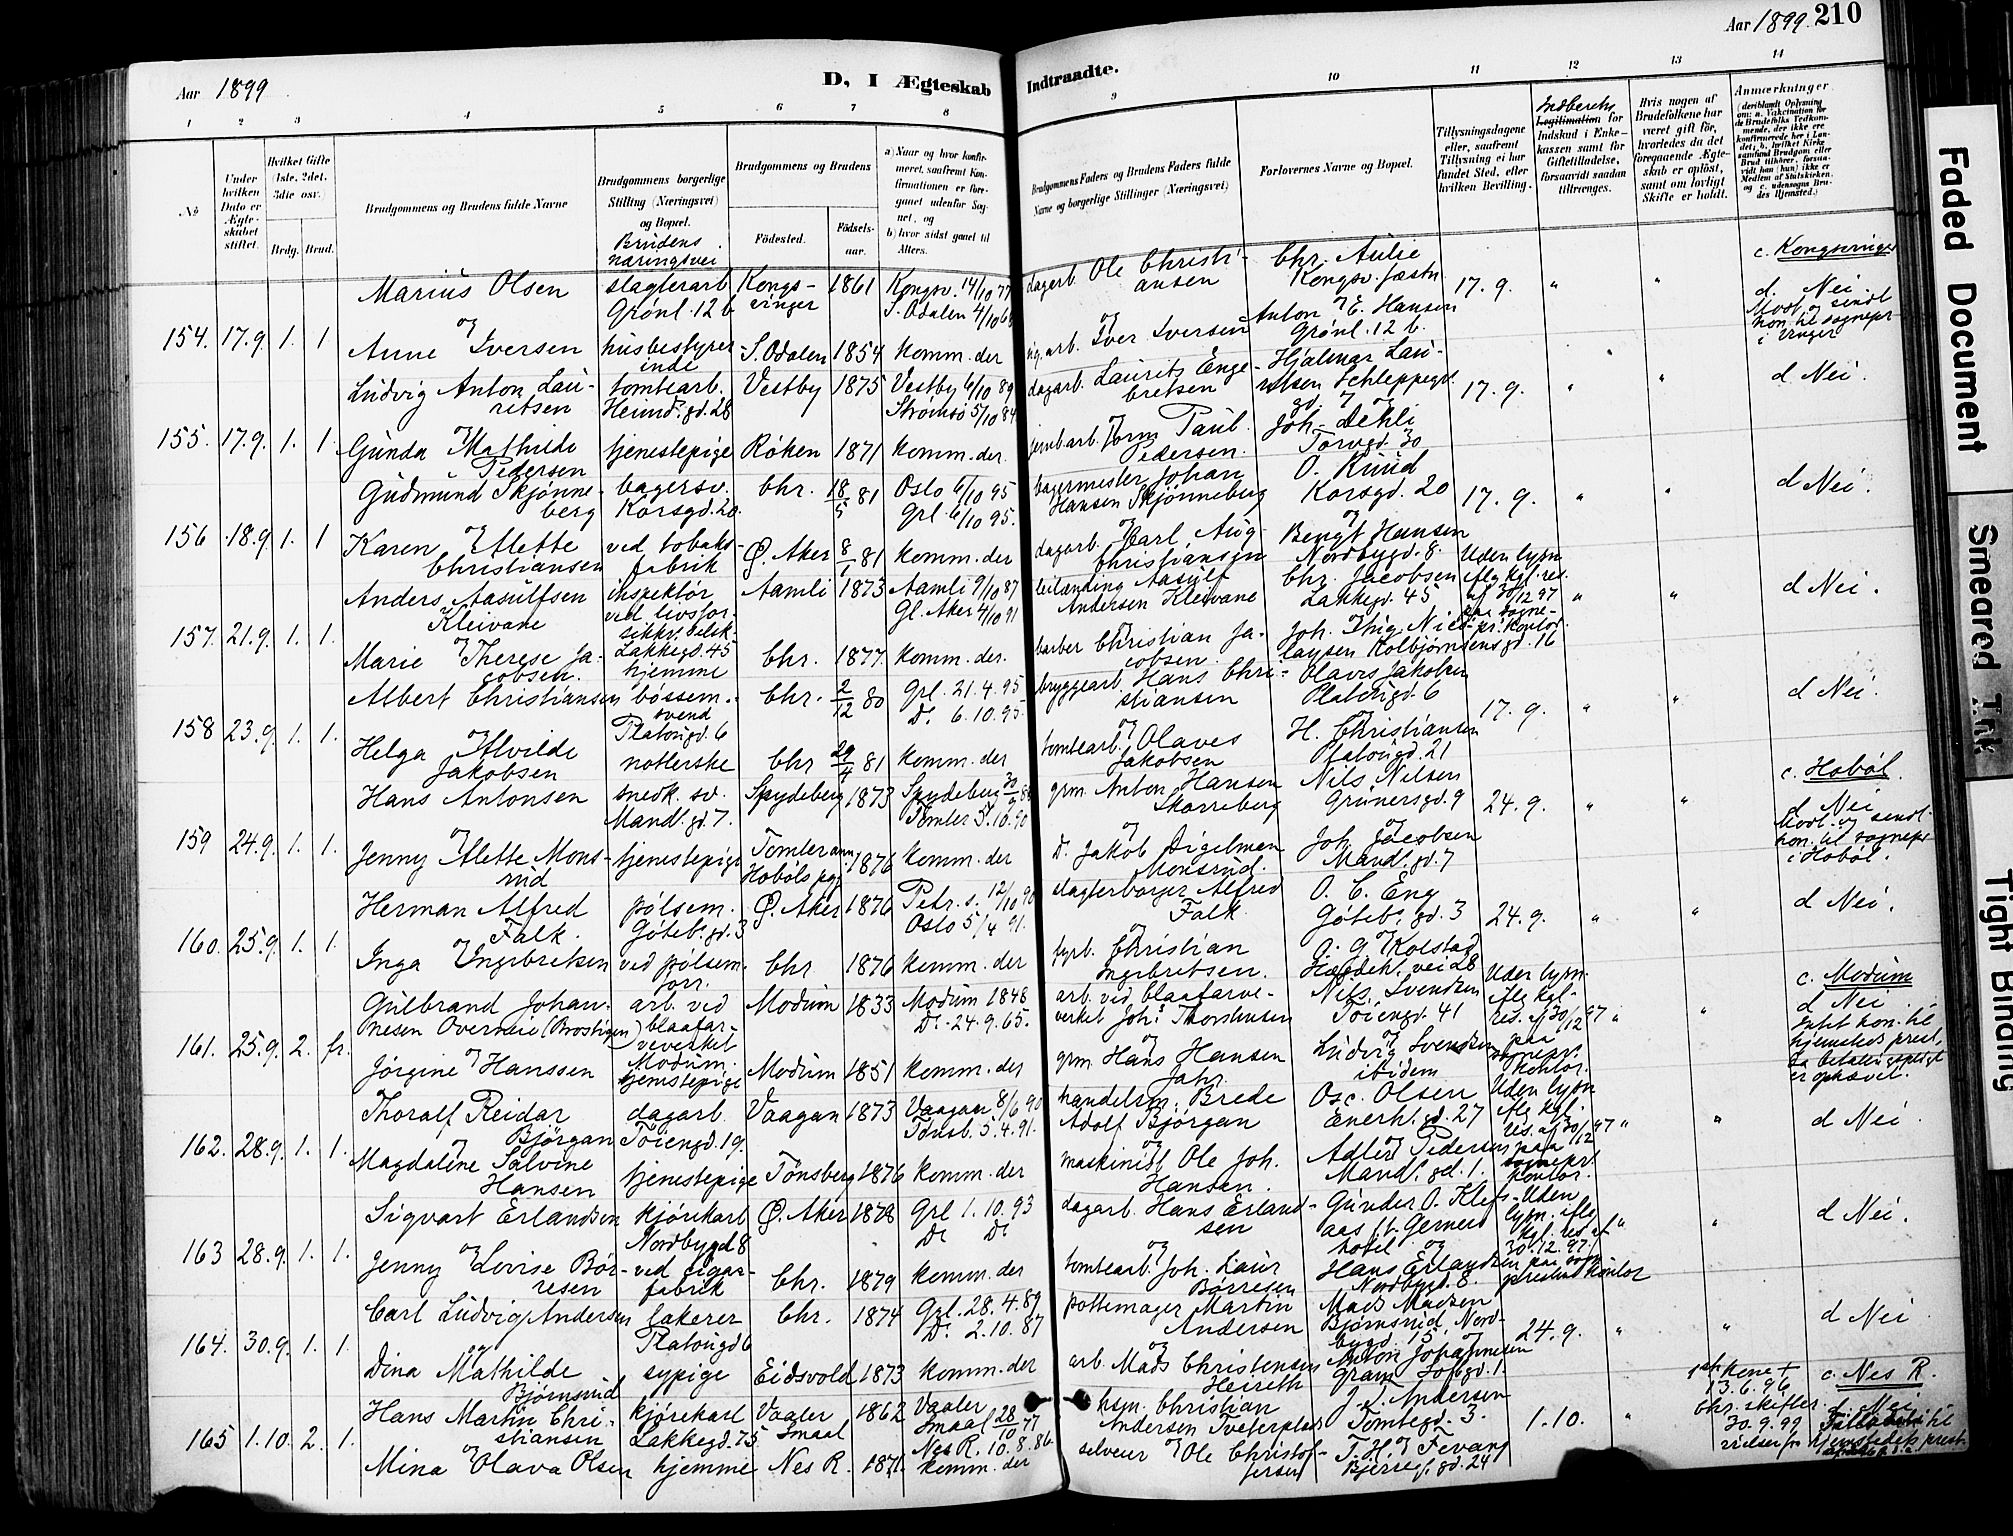 Aar 1899
D, I Ægteskab Indtraadte.
Aar 1899. 210
1 2 3 4 5 6 7 8 9 10 11 12 13 14
No
Under hvilken Dato er Ægteskabet stiftet.
Hvilket Gifte (1ste, 2det, 3die osv.)
Brdg. Brud.
Brudgommens og Brudens fulde Navne
Brudgommens borgerlige Stilling (Næringsvei) og Bopæl.
Brudens næringsvei
Brudgommens og Brudens
Fødested.
Fødselsaar.
a) Naar og hvor konfirmeret, saafremt Konfirmationen er foregaaet udenfor Sognet, og
b) hvor sidst gaaet til Alters.
Brudgommens Faders og Brudens Faders fulde Navne og borgerlige Stillinger (Næringsvei)
Forlovernes Navne og Bopæl.
Tillysningsdagene eller, saafremt Tillysning ei har fundet Sted, efter hvilken Bevilling.
Legitimation for Indskud i Enkekassen samt for Giftetilladelse, forsaavidt saadan tiltrænges.
Hvis nogen af Brudefolkene har været gift før, hvorledes da det foregaaende Ægteskab er opløst, samt om lovligt Skifte er holdt.
Anmærkninger
154. 17.9. 1. 1
Marius Olsen slagterarb Grønl. 12 b Kongsvinger 1861 Kongsv. 14/10 77 S. Odalen
dagerb. Ole Christiansen Chr. Aulie Kongsv. fæstn 17.9. " " c. Kongsvinger
og
Anne Iversen husbestyrerinde S. Odalen 1854 komm. der
Iver Iversen Anton E. Hansen Grønl. 12 b. d. Nei.
155. 17.9. 1. 1
Ludvig Anton Lauritsen tomtearb. Heimd. gd. 28 Vestby 1875 Vestby 6/10 89 Strømsø 5/10 84
dagarb. Laurits Engebretsen Hjalmar Lauritsen Schleppegd. gd. 7 17.9. " " d. Nei.
og
Gunda Mathilde Pedersen tjenestepige Røken 1871 komm. der.
Paul Pedersen. Joh. Dehli Torvgd. 30
156 18.9. 1. 1
Gudmund Skjønneberg bagersv. Korsgd. 20. Chr. 18/5 81 Oslo 6/10 95 Grl. 6/10 95.
bagermester Johan Hansen Skjønneberg O. Ruud Korsgd. 20 17.9. " " d Nei.
og
Karen Alette Christiansen ved tobaksfabrik Ø. Aker 81 komm. der
dagarb. Carl Aug. Christiansen Bengt Hansen Nordbygd. 8.
157. 21.9. 1. 1.
Anders Aasulfsen Kleivane inspektør ved livsfor. Lakkegd. 45 Aamli 1873 Aamli 9/10 87 Gl. Aker 4/10 91
leilænding Aasulf Andersen Kleivane Chr. Jacobsen Lakkegd. 45 Uden lysn. iflg kgl. res. af 30/12 97 paa sognepr. kontor. " " d Nei.
og
Marie Therese Jacobsen. hjemme Chr. 1877. komm. der.
barber Christian Jacobsen. Joh. Thig. Nicolaysen Kolbjørnsensgd. 16
158 23.9. 1. 1.
Albert Christiansen bøssem. svend Platougd. 6 Chr. 2/12 80 Grl. 21.4.95 Do. 6.10.95.
bryggearb. Hans Christiansen Olaves Jakobsen Platougd. 6 17.9. " " d Nei.
og
Helga Alvilde Jakobsen Chr 29/4 81 komm. der
tomtearb. Olaves Jakobsen H. Christiansen Platougd. 21
159 24.9. 1. 1.
Hans Antonsen snedk. sv. Mandl. gd. 7. Spydeberg 1873 Spydeberg Tomter 5.10.90
grm. Anton Hansen Skorreberg Nils Nilsen Grünersgd. 9 24.9. " " c. Hobøl.
og
Jenny Alette Monsrud tjenestepige Tomter ann. Hobøls pgj. 1876 komm. der
Do. Jakob Digelman Monsrud. Joh. Jacobsen Mandl. gd. 7 d Nei
160. 25.9. 1. 1.
Herman Alfred Falk. pølsem. Göteb. gd. 3 Ø. Aker 1876 Petr. s. 12/10 90 Oslo 5/4 91.
slagterborger Alfred Falk O. C. Eng Göteb. gd. 3 24.9. " " d Nei.
og
Inga Ingebretsen ved pølsem. forr. Chr 1876 komm. der
fyrb. Christian Ingebretsen. O. G. Kolstad
161. 25.9. 2. fr.
Gulbrand Johannesen Overneie (Brostigen) arb. ved blaafarveverket Modum. Modum 1833 Modum 1848 Do. 24.9.65.
arb. ved blaafarveverket Johs. Thorstensen Nils Svendsen Tøiengd. 41 Uden lysn. iflg kgl. res. af 30/12 97 paa sognepr. kontor. " " c. Modum d Nei
og
Jørgine Hanssen tjenestepige Modum 1851 komm. der
grm. Hans Hansen Jahr. Ludvig Svendsen ibidem
162. 28.9. 1. 1.
Thoralf Reidar Bjørgan dagarb. Tøiengd. 19. Vaagan 1873 Vaagan 8/6 90 Tønsb. 5.4.91.
handelsm. Brede Adolf Bjørgan Osc. Olsen Enerh. gd. 27 Uden lysn iflg kgl. res. af 30/12 97 paa sognepr. kontor. " " d Nei
og
Magdalene Salvine Hansen tjenestepige Tønsberg 1876 komm. der
maskinist Ole Joh. Hansen. Adler Pedersen Mandl. gd. 1.
163 28.9. 1. 1.
Sigvart Erlandsen kjørekarl Nordbygd 8 Ø. Aker 1878 Grl 1.10.93 Do Do
dagarb. Hans Erlandsen Gunder O. Klefsaas hotel Uden lysn. iflg kgl. res af 30.12.97 " " d Nei.
og
Jenny Lovise Børresen ved cigarfabrik Chr. 1879 komm. der
tomtearb. Joh. Laur Børresen Hans Erlandsen Nordbygd. 8.
164. 30.9. 1. 1.
Carl Ludvig Andersen lakerer Platougd 6 Chr. 1874 Grl. 28.4.89 Do. 2.10.87
pottemager Martin Andersen Mads Madsen Bjørnsrud, Nordbygd. 15 24.9. " " d Nei
og
Dina Mathilde Bjørnsrud sypige Eidsvold 1873 komm. der
arb. Mads Christensen Heireth Anton Johannesen Gram Toftgd. 1.
165 1.10 2. 1.
Hans Martin Christiansen kjørekarl Lakkegd. 75 Vaaler Smaal 1862 Vaaler Smaal 28/10 77 Nes R. 10.8.86
hsm. Christian Andersen Tveterplads J. L. Andersen Tomtegd. 3. 1.10. " 1ste kone + 13.6.96 Chr. skifter. 30.9.99 c. Nes R. d. Nei
og
Mina Olava Olsen hjemme Nes R. 1871. komm. der
selveier Ole Christoffersen T. H. Fevang gd. 24
Faded Document
Smeared Ink
Tight Binding